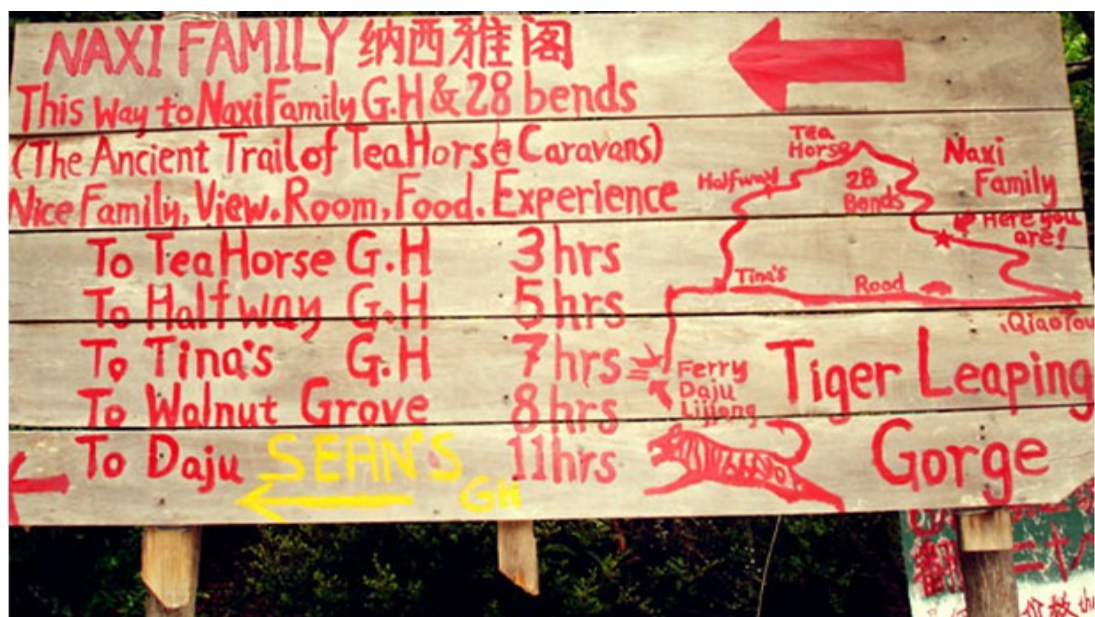 NAXI FAMILY 纳西雅阁
This Way to Naxi Family G.H & 28 bends
(The Ancient Trail of Tea Horse Caravans)
Nice Family, View. Room, Food. Experience
To Tea Horse G.H 3 hrs
To Halfway G.H 5 hrs
To Tina's G.H 7 hrs
To Walnut Grove 8 hrs
To Daju 11 hrs
SEAN'S
GH
Tea
Horse
Halfway
28
Bends
Naxi
Family
Here you
are!
Tina's
Road
QiaoTou
Ferry
Daju
Lijiang
Tiger Leaping
Gorge
二十八